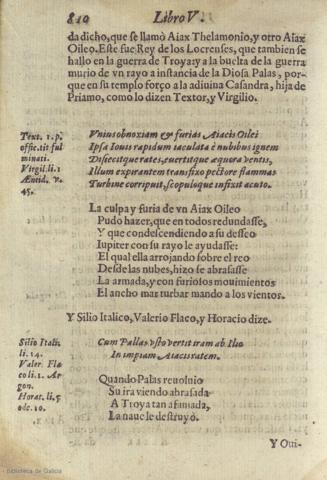 810 Libro V.
da dicho, que se llamò Aiax Thelamonio, y otro Aiax
Oileo. Este fue Rey de los Locrenses, que tambien se
hallo en la guerra de Troya: y a la buelta de la guerra
murio de vn rayo a instancia de la Diosa Palas, por-
que en su templo forço a la adiuina Casandra, hija de
Priamo, como lo dizen Textor, y Virgilio.
Text. 1. p.
offic. tit ful
minati.
Virgil. li. 1
Æneid. v.
45.
Vnius ob noxiam & furias Aiacis Oilei
Ipsa Iouis rapidum iaculata è nubibus ignem
Disiecitque rates, euertitque æquora ventis,
Illum expirantem transfixo pectore flammas
Turbine corripuit, scopuloque infixit acuto.
La culpa y furia de vn Aiax Oileo
Pudo hazer, que en todos redundasse,
Y que condescendiendo a su desseo
Iupiter con su rayo le ayudasse:
El qual ella arrojando sobre el reo
Desde las nubes, hizo se abrasasse
La armada, y con furiosos mouimientos
El ancho mar turbar mando a los vientos.
Y Silio Italico, Valerio Flaco, y Horacio dize.
Silio Itali.
li. 14.
Valer. Fla
co li. 1. Ar
gon.
Horat. li. 5
ode. 10.
Cum Pallas vsto vertit iram ab Ilio
In impiam Aiacis ratem.
Quando Palas reuoluio
Su ira viendo abrasada
A Troya tan afamada,
La naue le destruyo.
Y Oui-
Biblioteca de Galicia